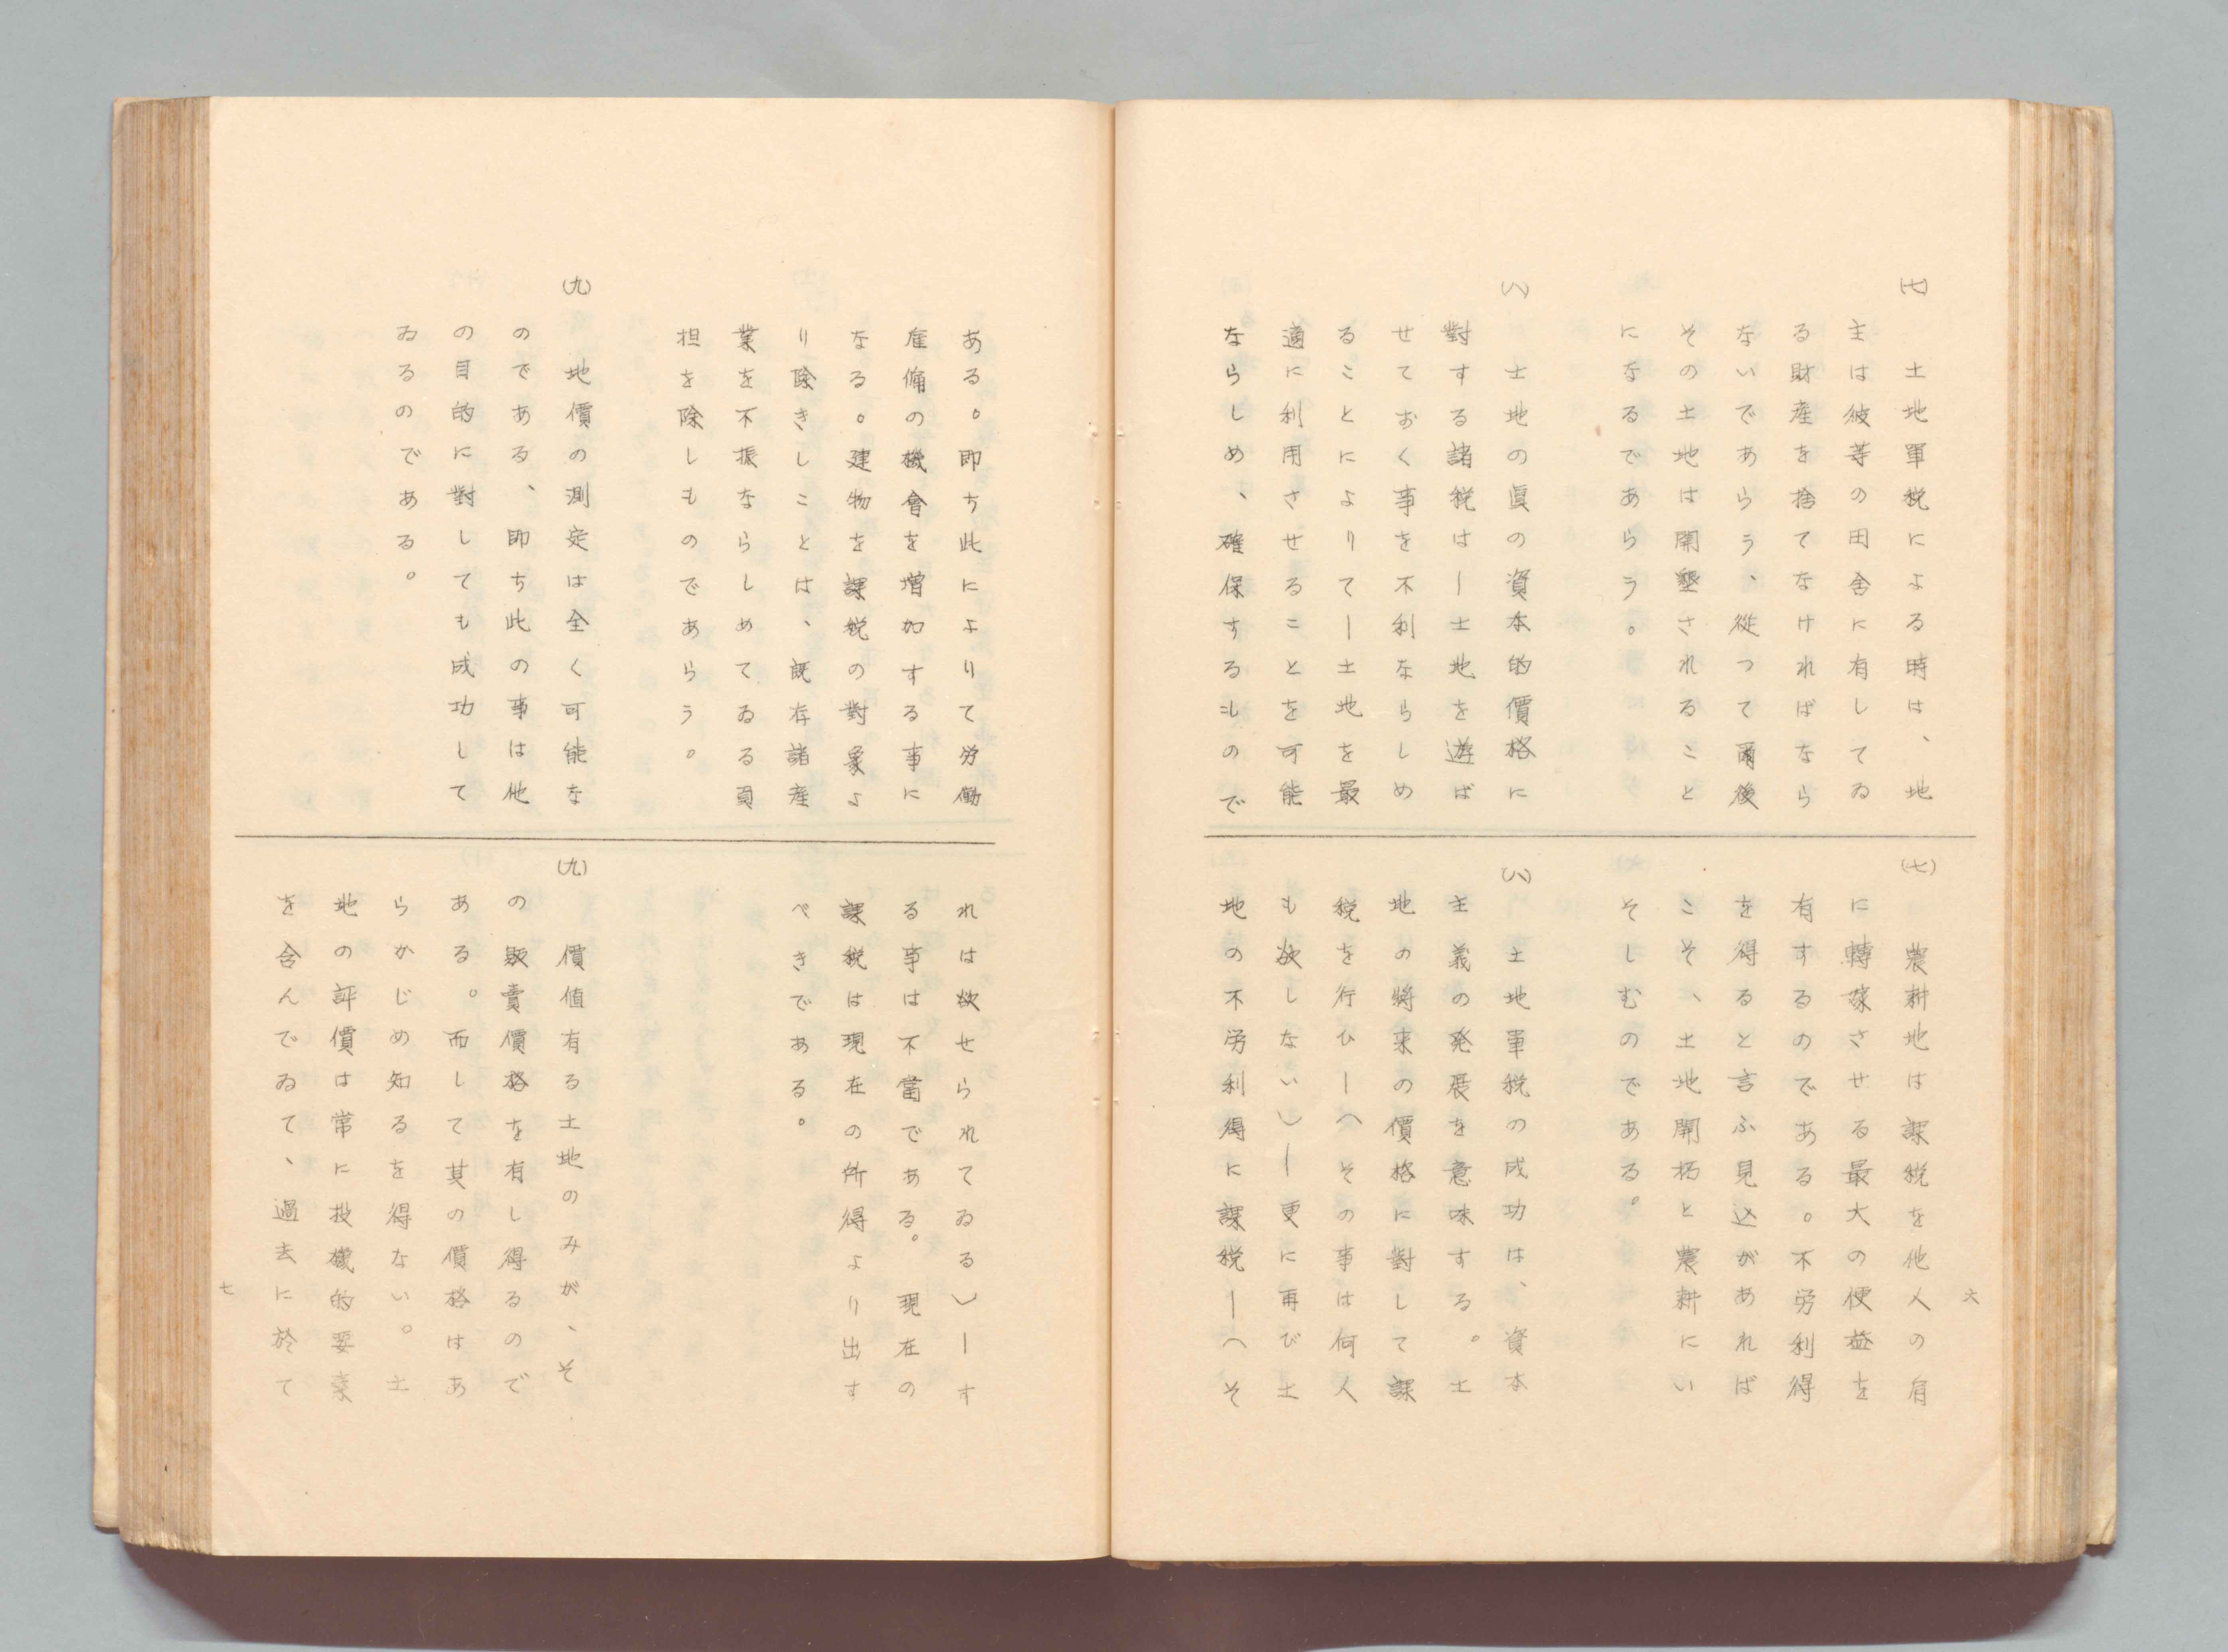 六
(七)
土地單税による時は、地
主は彼等の田舍に有してゐ
る財産を捨てなければなら
ないであらう、從つて爾後
その土地は開墾されること
になるであらう。
(八)
土地の眞の資本的價格に
對する諸税はー土地を遊ば
せておく事を不利ならしめ
ることによりてー土地を最
適に利用させることを可能
ならしめ、確保するもので
(七)
農耕地は課税を他人の肩
に轉嫁させる最大の便益を
有するのである。不労利得
を得ると言ふ見込があれば
こそ、土地開拓と農耕にい
そしむのである。
(八)
土地單税の成功は、資本
主義の発展を意味する。土
地の將来の價格に對して課
税を行ひー(その事は何人
も欲しない)ー更に再び土
地の不労利得に課税ー(そ
ある。即ち此によりて労働
雇傭の機會を増加する事に
なる。建物を課税の對象よ
り除きしことは、既存諸産
業を不振ならしめてゐる負
担を除しものであらう。
(九)
地價の測定は全く可能な
のである、即ち此の事は他
の目的に對しても成功して
ゐるのである。
れは欲せられてゐる)ーす
る事は不當である。現在の
課税は現在の所得より出す
べきである。
(九)
價値有る土地のみが、そ
の販賣價格を有し得るので
ある。而して其の價格はあ
らかじめ知るを得ない。土
地の評價は常に投機的要素
を含んでゐて、過去に於て
七